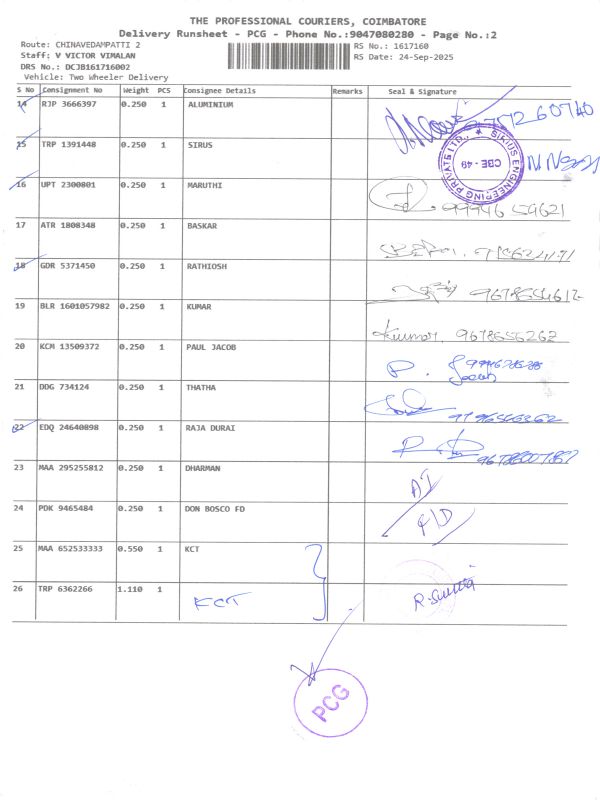 THE PROFESSIONAL COURIERS, COIMBATORE
Delivery Runsheet - PCG - Phone No.:9047080280 - Page No.:2
Route: CHINAVEDAMPATTI 2
RS No.: 1617160
Staff: V VICTOR VIMALAN
RS Date: 24-Sep-2025
DRS No.: DCJB161716002
Vehicle: Two Wheeler Delivery
S No Consignment No Weight PCS Consignee Details Remarks Seal & Signature
14 RJP 3666397 0.250 1 ALUMINIUM
15 TRP 1391448 0.250 1 SIRUS
SIRIUS ENGINEERING PRIVATE LTD., CBE - 49
16 UPT 2300801 0.250 1 MARUTHI 99946 59621
17 ATR 1808348 0.250 1 BASKAR
18 GDR 5371450 0.250 1 RATHIOSH
19 BLR 1601057982 0.250 1 KUMAR Kuumar, 9678656262
20 KCM 13509372 0.250 1 PAUL JACOB P. Jacob
21 DDG 734124 0.250 1 THATHA
22 EDQ 24640898 0.250 1 RAJA DURAI
23 MAA 295255812 0.250 1 DHARMAN
24 PDK 9465484 0.250 1 DON BOSCO FD
25 MAA 652533333 0.550 1 KCT
26 TRP 6362266 1.110 1 KCT
PCG